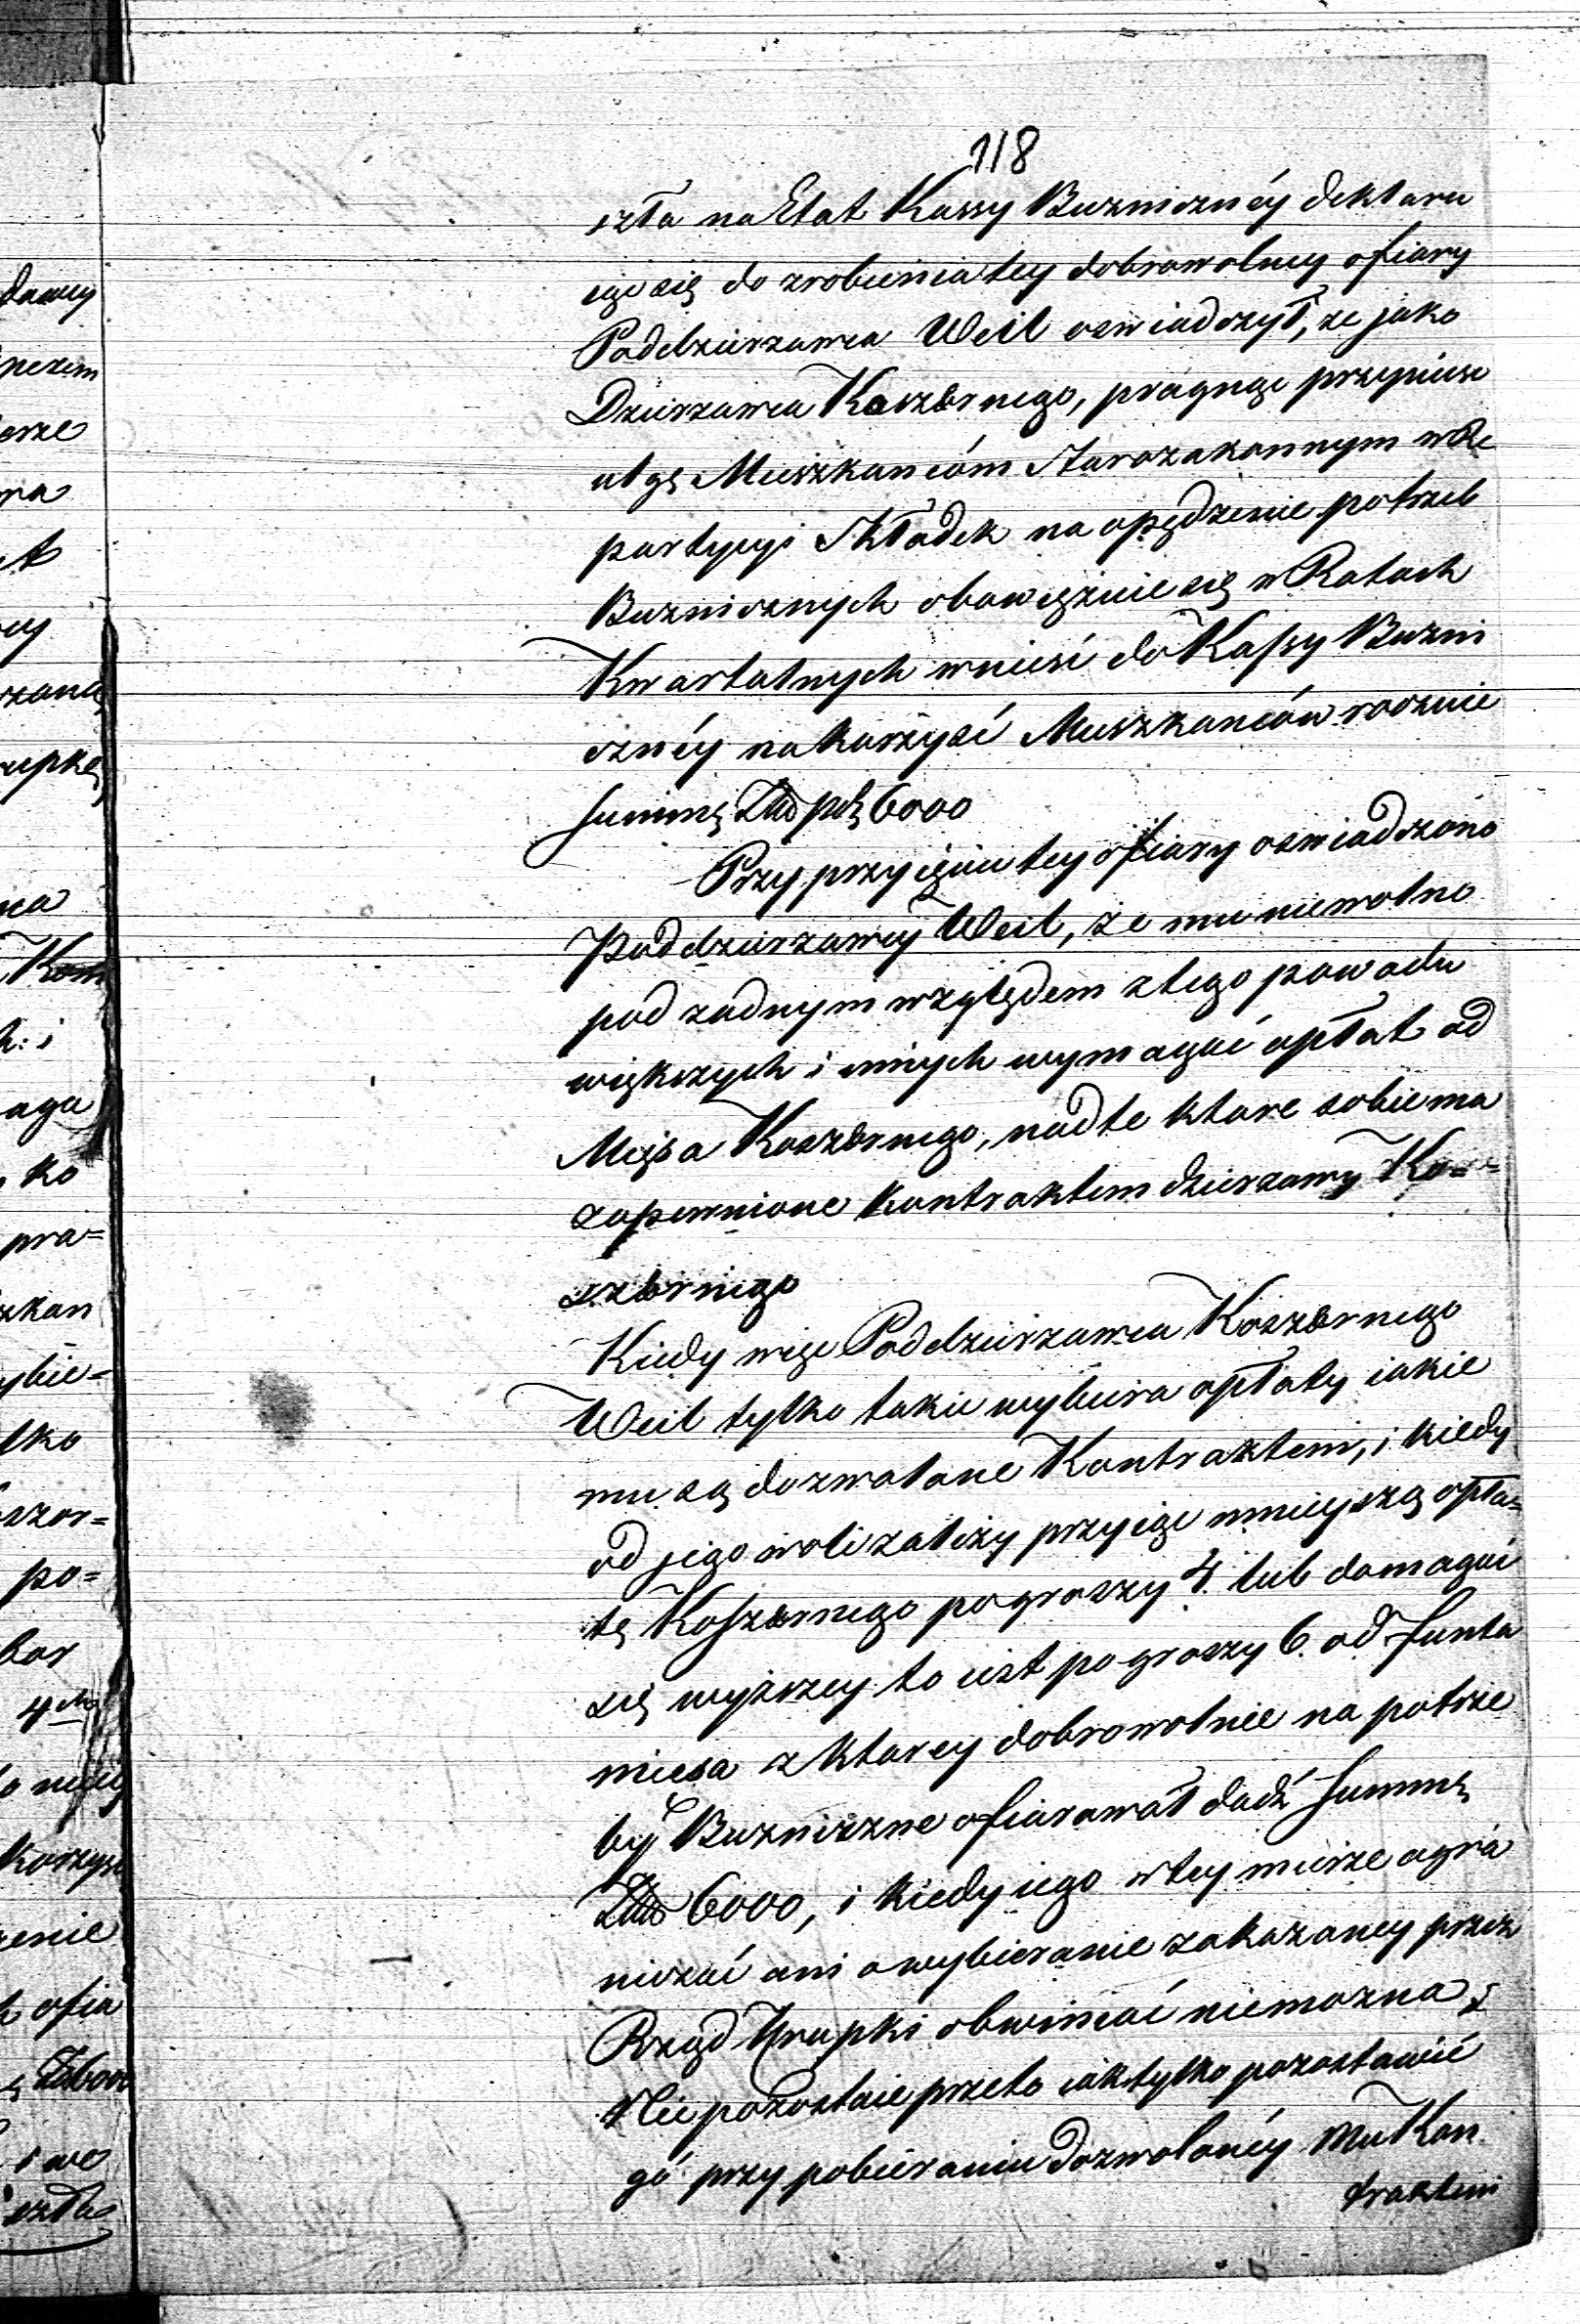 118
szła na Etat Kassy Buznicznéy deklaru
iąc się do zrobienia tey dobrowolney ofiary
Poddzierzawca Weil oswiadczył, ze jako
Dzierzawca Koszernego, pragnąc przyniesc
ulgę Mieszkancóm Starozakonnym w Re
partycyi Składek na opędzenie potrzeb
Buznicznych obowięzuie się w Ratach
Kwartalnych wnieść do Kassy Buzni
cznéy na korzyść Mieszkanców rocznie
Summę Złło pol 6000
Przy przyięciu tey ofiary oswiadczono
Poddzierzawcy Weil, ze mu niewolno
pod zadnym względem z tego powodu
większych i innych wymagać opłat od
Mięsa Koszernego, nad te ktore sobie ma
zapewnione Kontraktem dzierzawy Ko=
szernego
Kiedy więc Poddzierzawca Koszernego
Weil tylko takie wybiera opłaty iakie
mu są dozwolone Kontraktem, i kiedy
od jego woli zależy przyiąc mnieyszą opła=
tę Koszernego po groszy 4. lub domagać
się wyzszey to iest po groszy 6. od funta
miesa z ktorey dobrowolnie na potrze
by Buzniczne ofiarował dadź Summę
Złło 6000, i kiedy iego w tey mierze ogra
niczać ani o wybieranie zakazaney przez
Rząd Krupki obwiniać niemozna,
Nie pozostaie przeto iak tylko pozostawić
go przy pobieraniu dozwolonéy mu Kon
traktem
dawcy
pezem
erze
ra
ey
upkę
Kom
h: i
aga
ko
pra=
zkan
ybie=
lko
szor=
po=
bor
4ch
Korzys
enie
ofia
6000
i we
szła